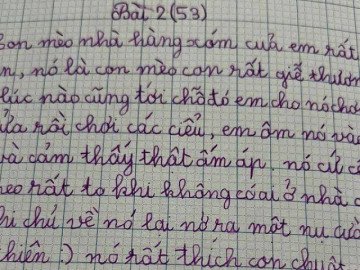 Bài 2 (53)
Con mèo nhà hàng xóm cưả em rất
n, nó là con mèo con rất giễ thươn
lúc nào cũng tới chỗ đó em cho nó chơ
ưả rồi chơi các ciểu, em ôm nó và
và cảm thấy thật ấm áp. nó cứ c
eo rất to khi không có ai ở nhà c
hi chú về nó lại nở ra một nụ cườ
hiên :) nó rất thích con chuột